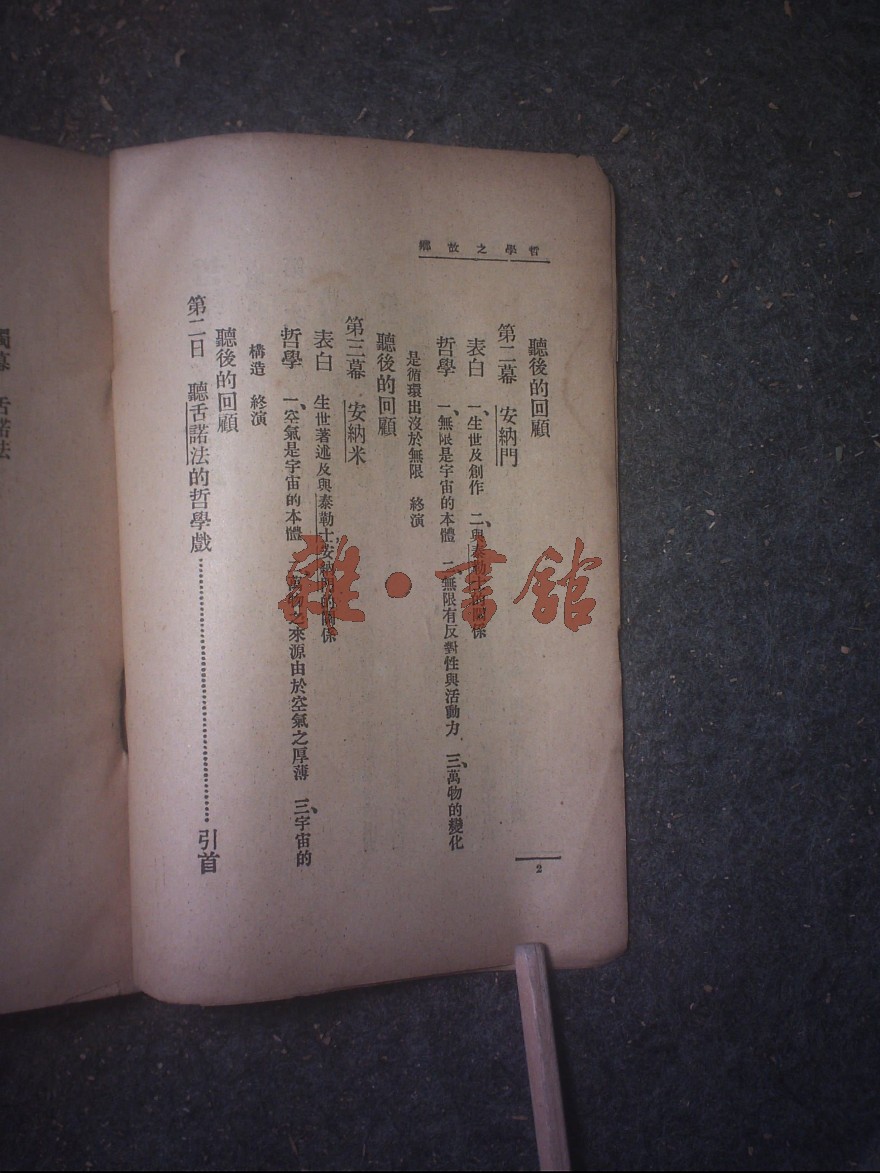 哲學之故鄉
聽後的回顧
第二幕 安納門
表白 一、生世及創作 二、與泰勒士的關係
哲學 一、無限是宇宙的本體 二、無限有反對性與活動力 三、萬物的變化
是循環出沒於無限 終演
聽後的回顧
第三幕 安納米
表白 生世著述及與泰勒士,安納門的關係
哲學 一、空氣是宇宙的本體 二、萬物之來源由於空氣之厚薄 三、宇宙的
構造 終演
聽後的回顧
第二日 聽舌諾法的哲學戲……………………………引首
2
獨幕 舌諾法
雜·書館